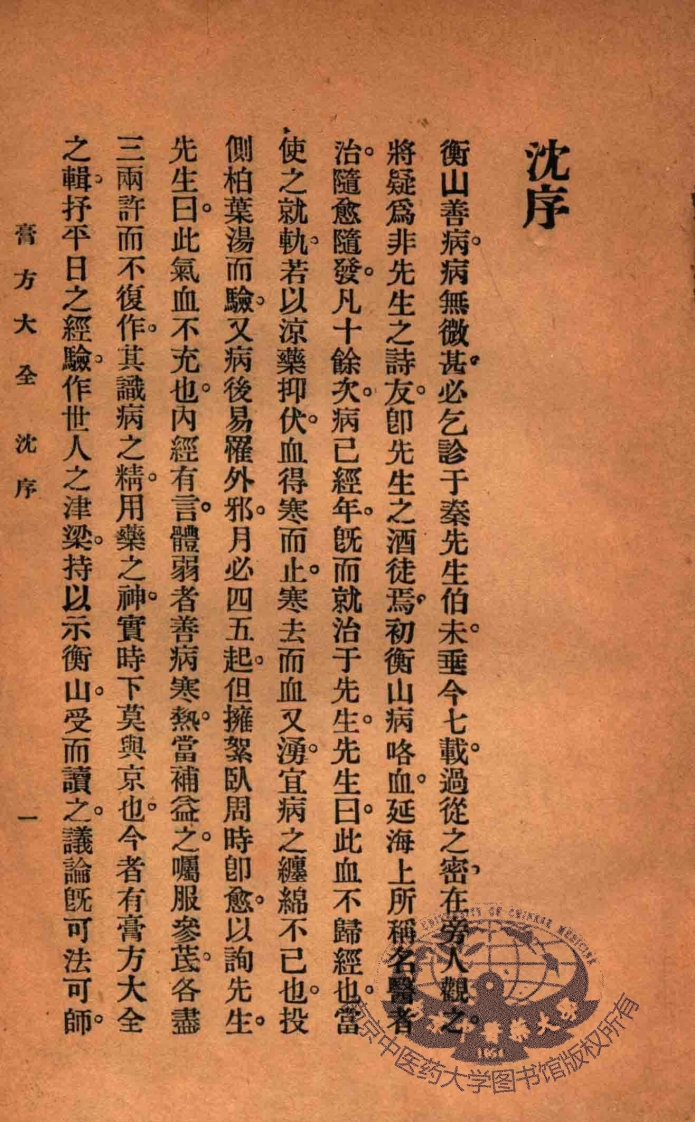 沈序
衡山善病。病無微甚。必乞診于秦先生伯未。垂今七載。過從之密。在旁人觀之。
將疑爲非先生之詩友。卽先生之酒徒焉。初衡山病咯血。延海上所稱名醫者
治。隨愈隨發。凡十餘次。病已經年。旣而就治于先生。先生曰。此血不歸經也。當
使之就軌。若以涼藥抑伏。血得寒而止。寒去而血又湧。宜病之纏綿不已也。投
側柏葉湯而驗。又病後易罹外邪。月必四五起。但擁絮臥周時卽愈。以詢先生。
先生曰。此氣血不充也。內經有言。體弱者善病寒熱。當補益之。囑服參茋。各盡
三兩許而不復作。其識病之精。用藥之神。實時下莫與京也。今者有膏方大全
之輯。抒平日之經驗。作世人之津梁。持以示衡山。受而讀之。議論旣可法可師。
膏方大全 沈序 一
UNIVERSITY OF CHINESE MEDICINE
1954
南京中医药大学图书馆版权所有